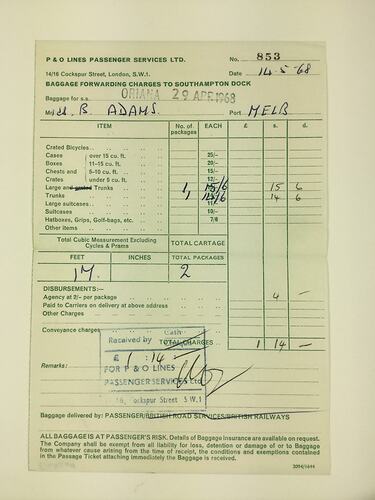 P & O LINES PASSENGER SERVICES LTD. No. 853
14/16 Cockspur Street, London, S.W.1. Date 14-5-68
BAGGAGE FORWARDING CHARGES TO SOUTHAMPTON DOCK
Baggage for s.s. ORIANA 29 APR 1968
B. ADAMS. Port MELB
ITEM No. of packages EACH £ s. d.
Crated Bicycles
Cases over 15 cu. ft. 25/-
Boxes 11–15 cu. ft. 20/-
Chests and 5–10 cu. ft. 15/-
Crates under 5 cu. ft. 12/-
Large and crated Trunks 1, 15/6 15 6
Trunks 1, 14/6 14 6
Large suitcases 11/-
Suitcases 10/-
Hatboxes, Grips, Golf-bags, etc. 7/6
Other items
Total Cubic Measurement Excluding Cycles & Prams TOTAL CARTAGE
FEET INCHES TOTAL PACKAGES
2
DISBURSEMENTS:—
Agency at 2/- per package 4 —
Paid to Carriers on delivery at above address
Other Charges
Conveyance charges
TOTAL CHARGES 1 14 —
Received by Cash
£ 1 : 14 —
Remarks: FOR P & O LINES
PASSENGER SERVICES Ltd
16, Cockspur Street S.W.1
Baggage delivered by: PASSENGER/BRITISH ROAD SERVICES/BRITISH RAILWAYS
ALL BAGGAGE IS AT PASSENGER'S RISK. Details of Baggage insurance are available on request.
The Company shall be exempt from all liability for loss, detention or damage of or to Baggage
from whatever cause arising from the time of receipt, the conditions and exemptions contained
in the Passage Ticket attaching immediately the Baggage is received.